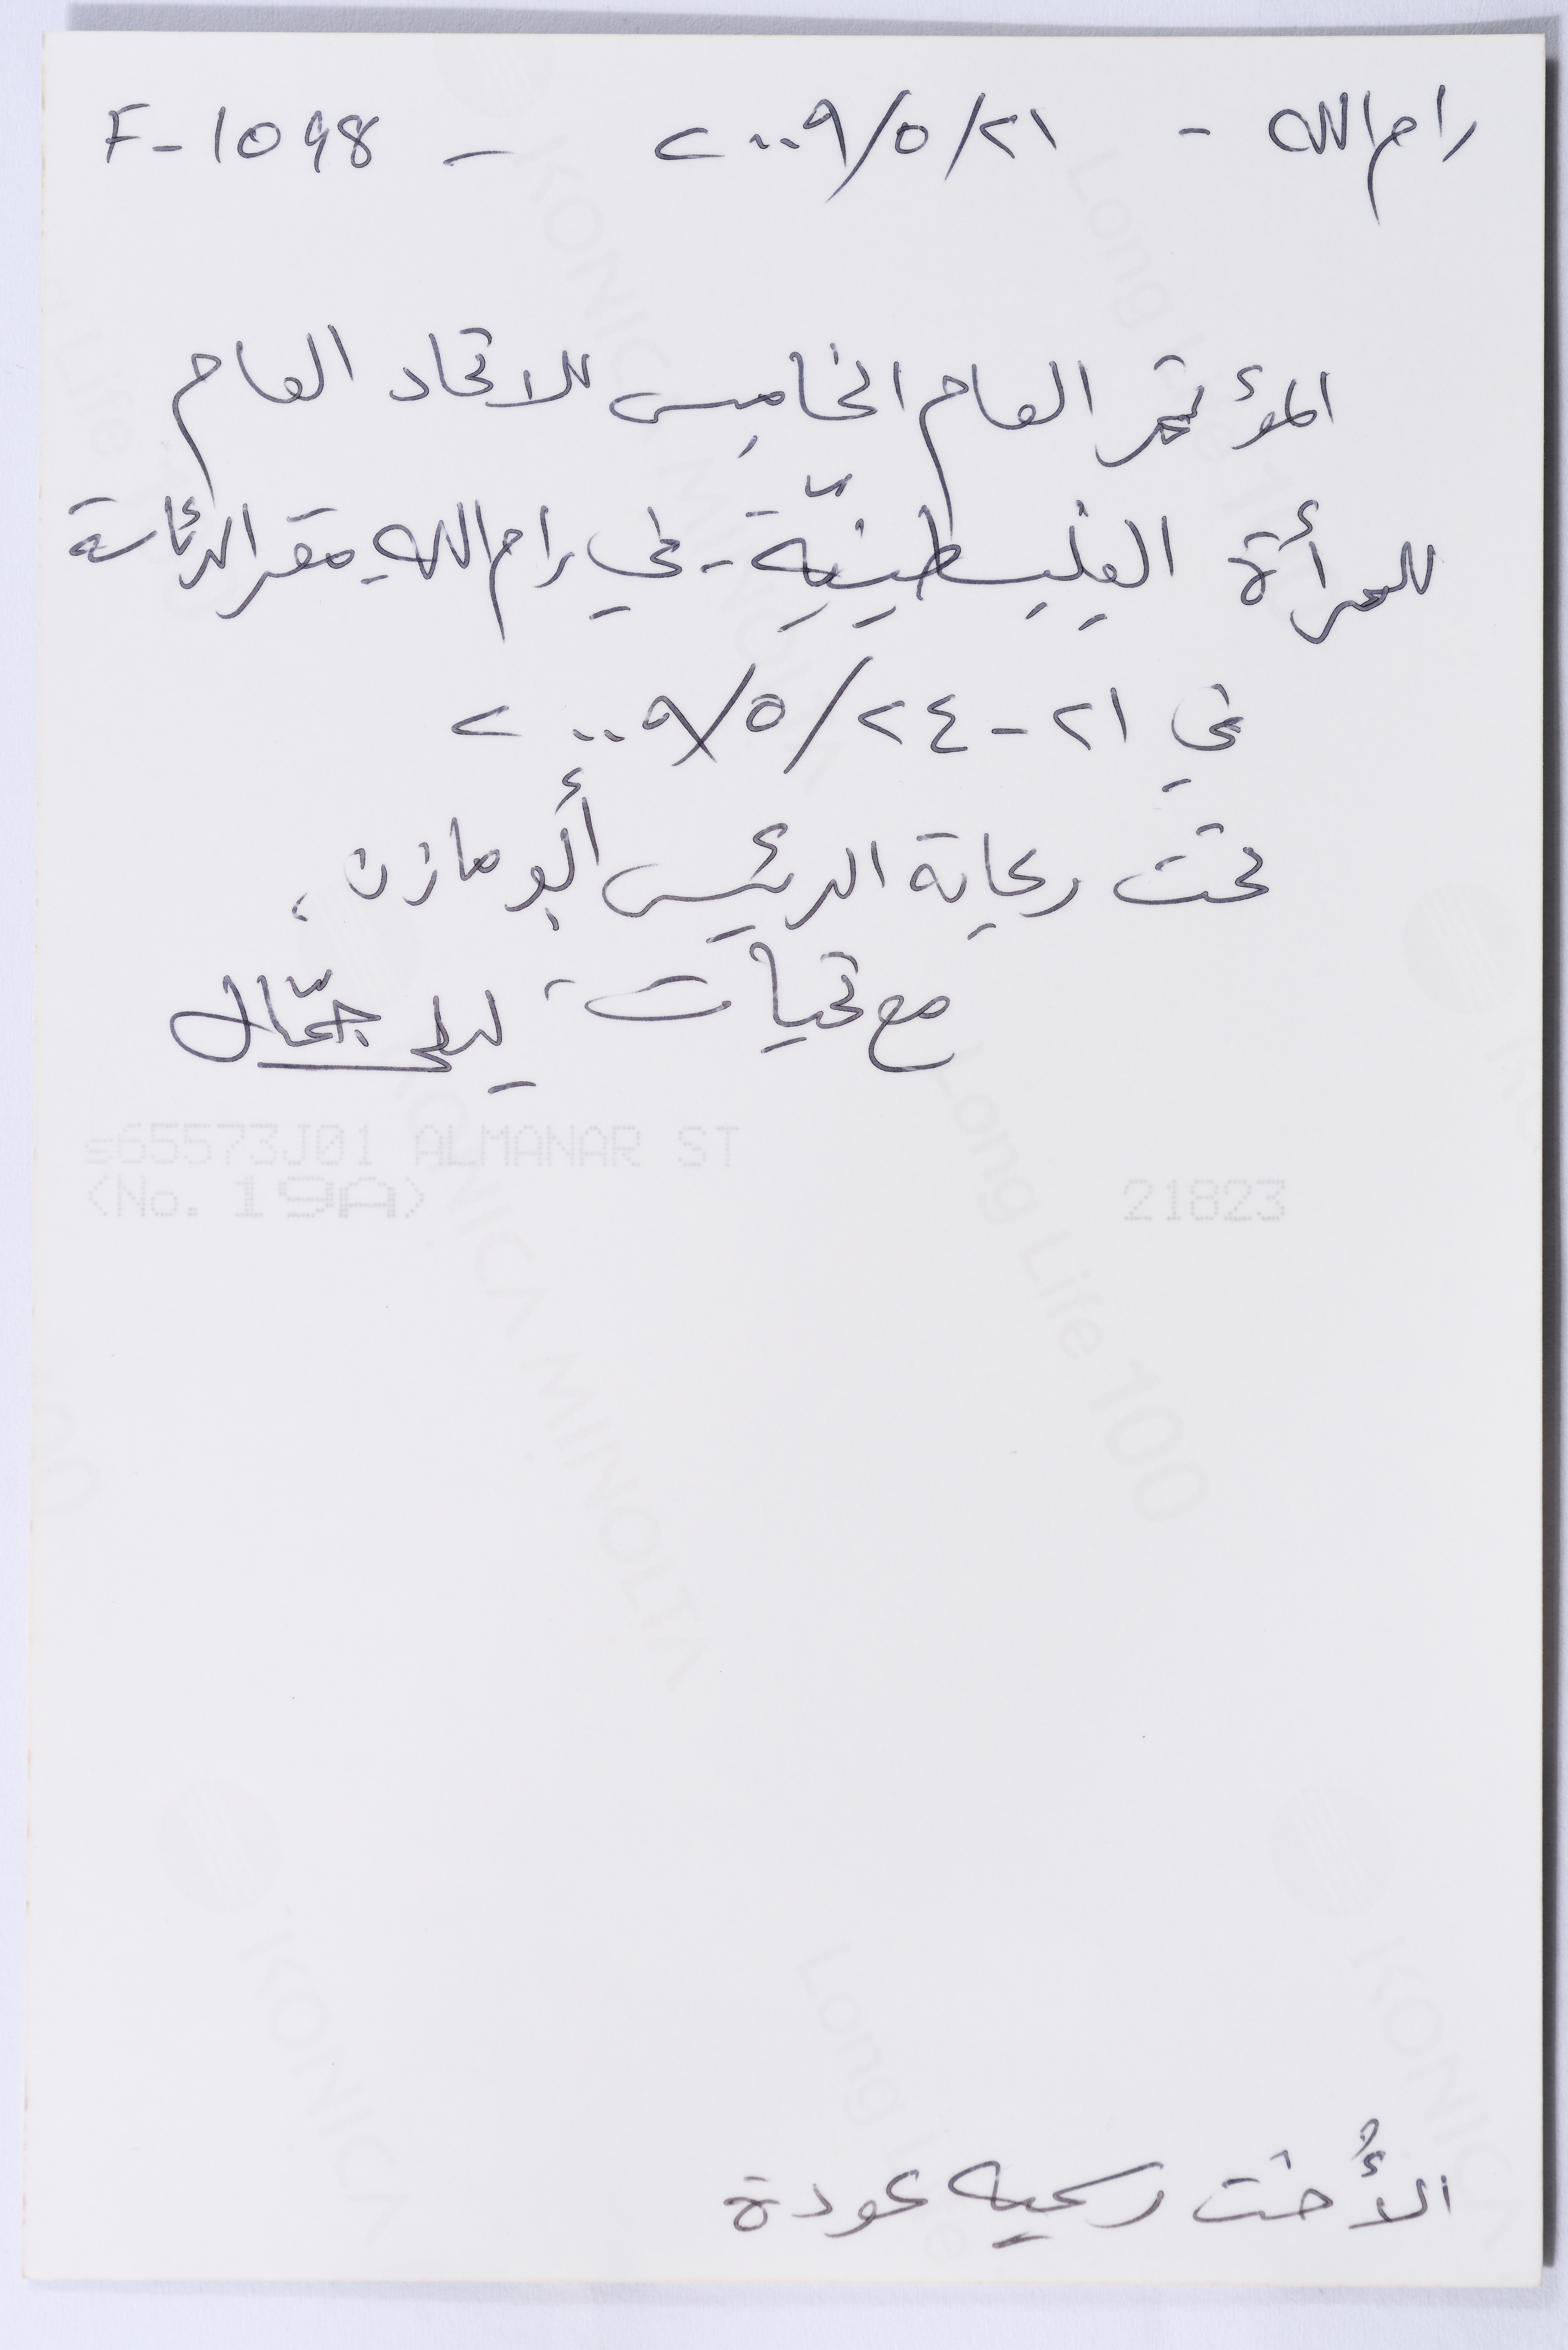 رام الله - ٢١/٥/٢٠٠٩ - F-1098
المؤتمر العام الخامس للاتحاد العام
للمرأة الفلسطينيّة - في رام الله - مقر الرئاسة
في ٢١-٢٤/٥/٢٠٠٩
تحت رعاية الرئيس أبو مازن،
مع تحيات ليلى جمّال
s65573J01 ALMANAR ST
<No. 19A> 21823
الأُخت رسميه عودة
KONICA MINOLTA
Long Life 100